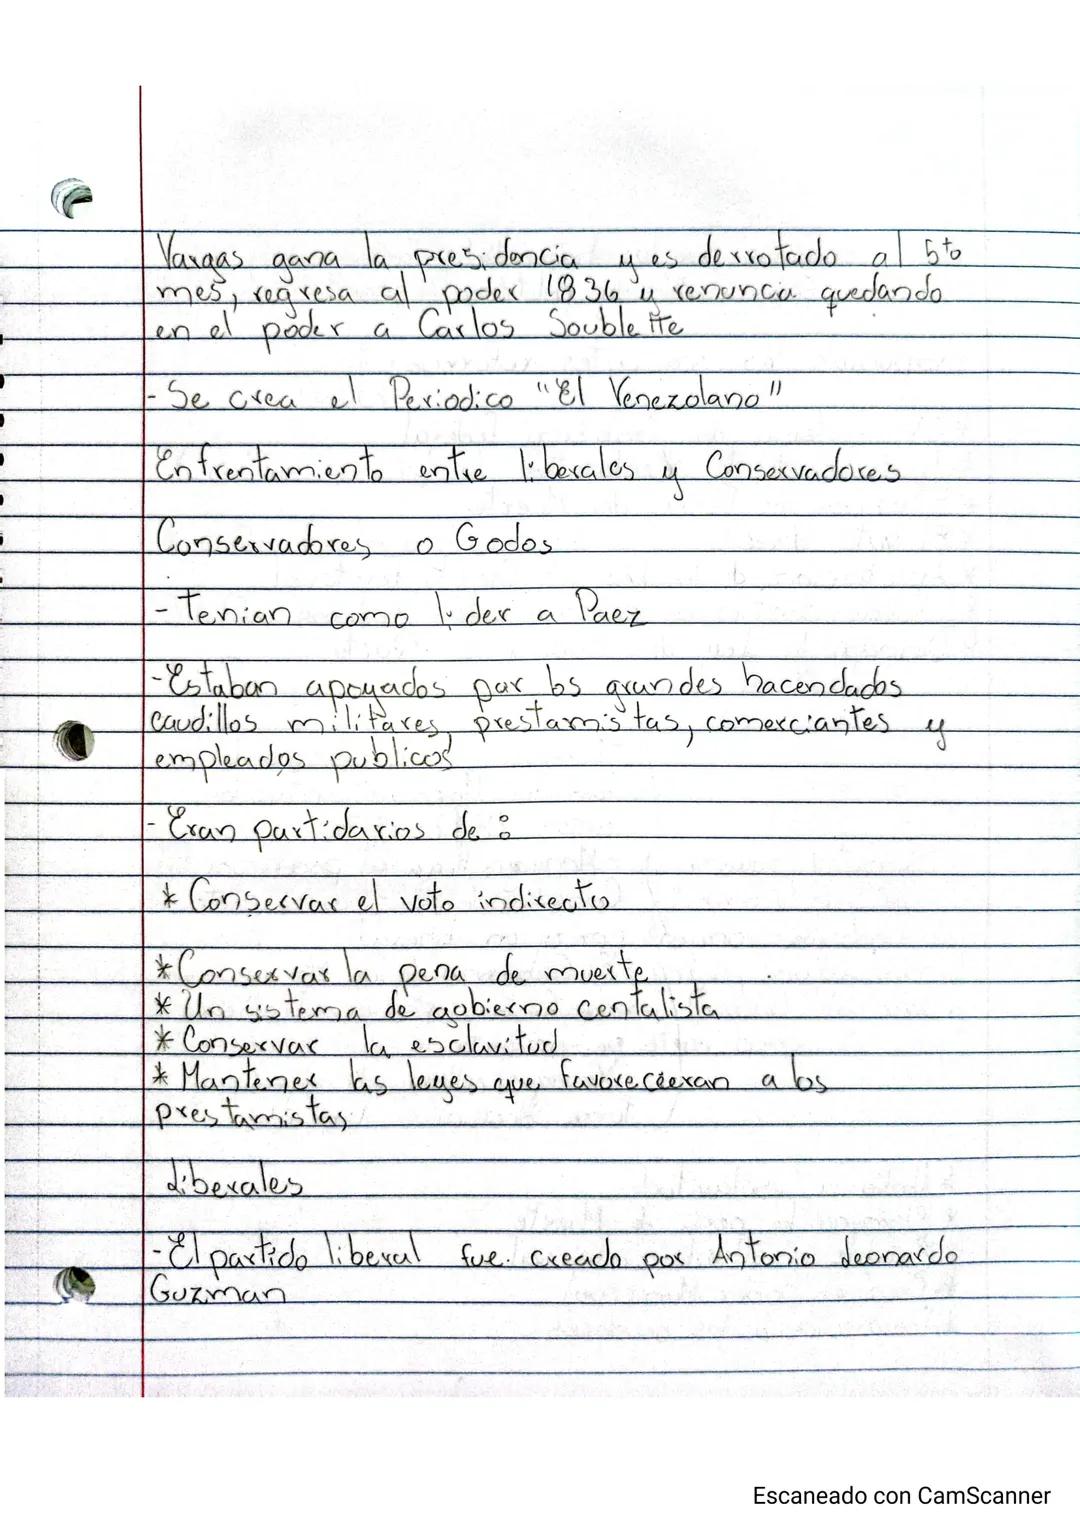 Vargas gana la presidencia y es derrotado al 5to
mes, regresa al poder 1836 y renuncia quedando
en el poder a Carlos Soublette
- Se crea el Periodico "El Venezolano"
Enfrentamiento entre liberales y Conservadores
Conservadores o Godos
- Tenian como lider a Paez
- Estaban apoyados por los grandes hacendados
caudillos militares, prestamistas, comerciantes y
empleados publicos
- Eran partidarios de :
* Conservar el voto indirecto
* Conservar la pena de muerte
* Un sistema de gobierno centalista
* Conservar la esclavitud
* Mantener las leyes que favorecieran a los
prestamistas
Liberales
- El partido liberal fue creado por Antonio Leonardo
Guzman
Escaneado con CamScanner